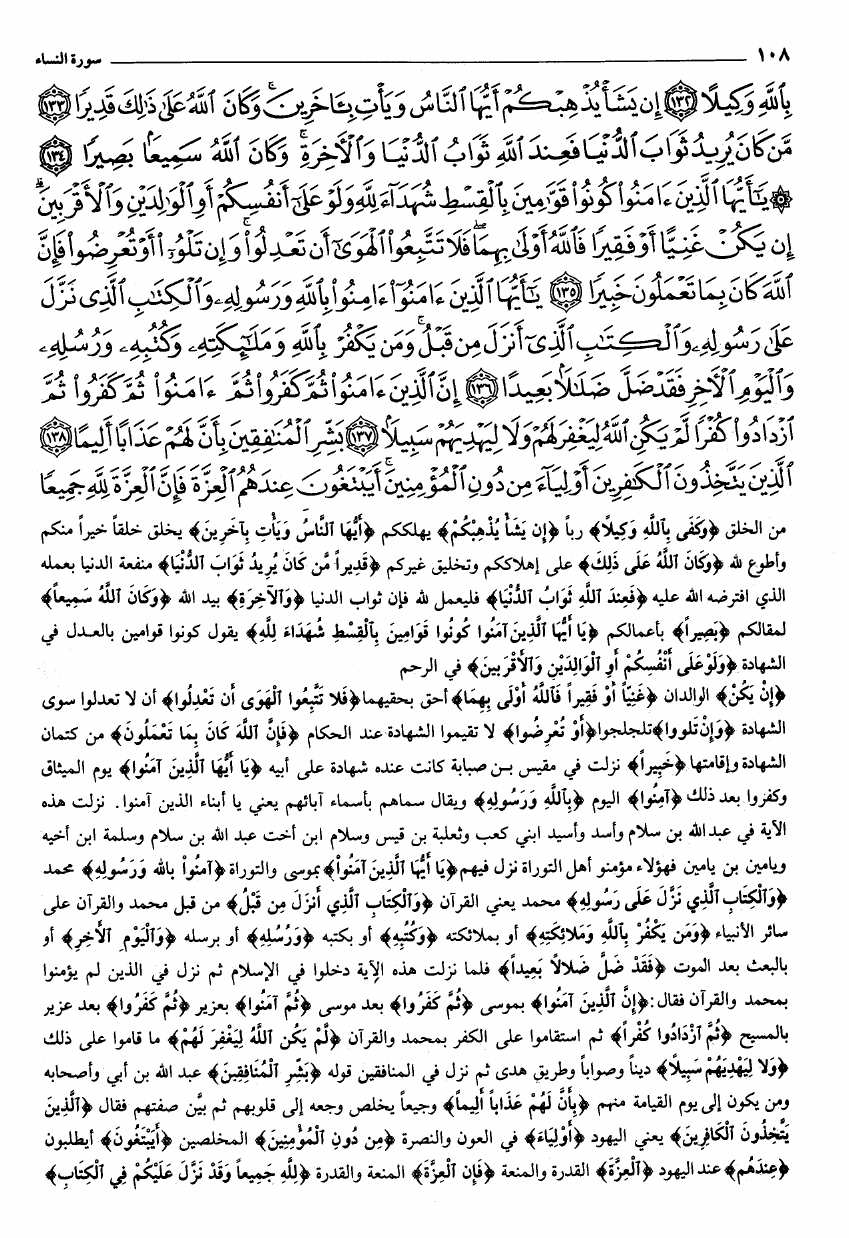 ١٠٨ سورة النساء
بِٱللَّهِ وَكِيلًا ﴿١٣٢﴾ إِن يَشَأْ يُذْهِبْكُمْ أَيُّهَا ٱلنَّاسُ وَيَأْتِ بِـَٔاخَرِينَ ۚ وَكَانَ ٱللَّهُ عَلَىٰ ذَٰلِكَ قَدِيرًا ﴿١٣٣﴾
مَّن كَانَ يُرِيدُ ثَوَابَ ٱلدُّنْيَا فَعِندَ ٱللَّهِ ثَوَابُ ٱلدُّنْيَا وَٱلْأَخِرَةِ ۚ وَكَانَ ٱللَّهُ سَمِيعًۢا بَصِيرًا ﴿١٣٤﴾
۞ يَـٰٓأَيُّهَا ٱلَّذِينَ ءَامَنُوا۟ كُونُوا۟ قَوَّٰمِينَ بِٱلْقِسْطِ شُهَدَآءَ لِلَّهِ وَلَوْ عَلَىٰٓ أَنفُسِكُمْ أَوِ ٱلْوَٰلِدَيْنِ وَٱلْأَقْرَبِينَ ۚ
إِن يَكُنْ غَنِيًّا أَوْ فَقِيرًا فَٱللَّهُ أَوْلَىٰ بِهِمَا ۖ فَلَا تَتَّبِعُوا۟ ٱلْهَوَىٰٓ أَن تَعْدِلُوا۟ ۚ وَإِن تَلْوُۥٓا۟ أَوْ تُعْرِضُوا۟ فَإِنَّ
ٱللَّهَ كَانَ بِمَا تَعْمَلُونَ خَبِيرًا ﴿١٣٥﴾ يَـٰٓأَيُّهَا ٱلَّذِينَ ءَامَنُوٓا۟ ءَامِنُوا۟ بِٱللَّهِ وَرَسُولِهِۦ وَٱلْكِتَـٰبِ ٱلَّذِى نَزَّلَ
عَلَىٰ رَسُولِهِۦ وَٱلْكِتَـٰبِ ٱلَّذِىٓ أَنزَلَ مِن قَبْلُ ۚ وَمَن يَكْفُرْ بِٱللَّهِ وَمَلَـٰٓئِكَتِهِۦ وَكُتُبِهِۦ وَرُسُلِهِۦ
وَٱلْيَوْمِ ٱلْأَخِرِ فَقَدْ ضَلَّ ضَلَـٰلًۢا بَعِيدًا ﴿١٣٦﴾ إِنَّ ٱلَّذِينَ ءَامَنُوا۟ ثُمَّ كَفَرُوا۟ ثُمَّ ءَامَنُوا۟ ثُمَّ كَفَرُوا۟ ثُمَّ
ٱزْدَادُوا۟ كُفْرًا لَّمْ يَكُنِ ٱللَّهُ لِيَغْفِرَ لَهُمْ وَلَا لِيَهْدِيَهُمْ سَبِيلًۢا ﴿١٣٧﴾ بَشِّرِ ٱلْمُنَـٰفِقِينَ بِأَنَّ لَهُمْ عَذَابًا أَلِيمًا ﴿١٣٨﴾
ٱلَّذِينَ يَتَّخِذُونَ ٱلْكَـٰفِرِينَ أَوْلِيَآءَ مِن دُونِ ٱلْمُؤْمِنِينَ ۚ أَيَبْتَغُونَ عِندَهُمُ ٱلْعِزَّةَ فَإِنَّ ٱلْعِزَّةَ لِلَّهِ جَمِيعًا
من الخلق ﴿وَكَفَى بِٱللَّهِ وَكِيلًا﴾ رباً ﴿إِن يَشَأْ يُذْهِبْكُمْ﴾ يهلككم ﴿أَيُّهَا ٱلنَّاسُ وَيَأْتِ بِآخَرِينَ﴾ يخلق خلقاً خيراً منكم
وأطوع لله ﴿وَكَانَ ٱللَّهُ عَلَى ذَلِكَ﴾ على إهلاككم وتخليق غيركم ﴿قَدِيراً مَّن كَانَ يُرِيدُ ثَوَابَ ٱلدُّنْيَا﴾ منفعة الدنيا بعمله
الذي افترضه الله عليه ﴿فَعِندَ ٱللَّهِ ثَوَابُ ٱلدُّنْيَا﴾ فليعمل لله فإن ثواب الدنيا ﴿وَٱلآخِرَةِ﴾ بيد الله ﴿وَكَانَ ٱللَّهُ سَمِيعاً﴾
لمقالكم ﴿بَصِيراً﴾ بأعمالكم ﴿يَا أَيُّهَا ٱلَّذِينَ آمَنُوا كُونُوا قَوَامِينَ بِٱلْقِسْطِ شُهَدَاءَ لِلَّهِ﴾ يقول كونوا قوامين بالعدل في
الشهادة ﴿وَلَوْ عَلَى أَنْفُسِكُمْ أَوِ ٱلْوَالِدَيْنِ وَٱلأَقْرَبِينَ﴾ في الرحم
﴿إِنْ يَكُنْ﴾ الوالدان ﴿غَنِيّاً أَوْ فَقِيراً فَٱللَّهُ أَوْلَى بِهِمَا﴾ أحق بحقيهما ﴿فَلَا تَتَّبِعُوا ٱلْهَوَى أَن تَعْدِلُوا﴾ أن لا تعدلوا سوى
الشهادة ﴿وَإِنْ تَلووا﴾ تلجلجوا ﴿أَوْ تُعْرِضُوا﴾ لا تقيموا الشهادة عند الحكام ﴿فَإِنَّ ٱللَّهَ كَانَ بِمَا تَعْمَلُونَ﴾ من كتمان
الشهادة وإقامتها ﴿خَبِيراً﴾ نزلت في مقيس بـن صبابة كانت عنده شهادة على أبيه ﴿يَا أَيُّهَا ٱلَّذِينَ آمَنُوا﴾ يوم الميثاق
وكفروا بعد ذلك ﴿آمِنُوا﴾ اليوم ﴿بِٱللَّهِ وَرَسُولِهِ﴾ ويقال سماهم بأسماء آبائهم يعني يا أبناء الذين آمنوا. نزلت هذه
الآية في عبد الله بن سلام وأسد وأسيد ابني كعب وثعلبة بن قيس وسلام ابن أخت عبد الله بن سلام وسلمة ابن أخيه
ويامين بن يامين فهؤلاء مؤمنو أهل التوراة نزل فيهم ﴿يَا أَيُّهَا ٱلَّذِينَ آمَنُواْ﴾ بموسى والتوراة ﴿آمَنُواْ بالله وَرَسُولِهِ﴾ محمد
﴿وَٱلْكِتَابِ ٱلَّذِي نَزَّلَ عَلَى رَسُولِهِ﴾ محمد يعني القرآن ﴿وَٱلْكِتَابِ ٱلَّذِي أَنزَلَ مِن قَبْلُ﴾ من قبل محمد والقرآن على
سائر الأنبياء ﴿وَمَن يَكْفُرْ بِٱللَّهِ وَمَلائِكَتِهِ﴾ أو بملائكته ﴿وَكُتُبِهِ﴾ أو بكتبه ﴿وَرُسُلِهِ﴾ أو برسله ﴿وَٱلْيَوْمِ ٱلآخِرِ﴾ أو
بالبعث بعد الموت ﴿فَقَدْ ضَلَّ ضَلالاً بَعِيداً﴾ فلما نزلت هذه الآية دخلوا في الإسلام ثم نزل في الذين لم يؤمنوا
بمحمد والقرآن فقال: ﴿إِنَّ ٱلَّذِينَ آمَنُوا﴾ بموسى ﴿ثُمَّ كَفَرُوا﴾ بعد موسى ﴿ثُمَّ آمَنُوا﴾ بعزير ﴿ثُمَّ كَفَرُوا﴾ بعد عزير
بالمسيح ﴿ثُمَّ ٱزْدَادُوا كُفْراً﴾ ثم استقاموا على الكفر بمحمد والقرآن ﴿لَّمْ يَكُن ٱللَّهُ لِيَغْفِرَ لَهُمْ﴾ ما قاموا على ذلك
﴿وَلا لِيَهْدِيَهُمْ سَبِيلاً﴾ ديناً وصواباً وطريق هدى ثم نزل في المنافقين قوله ﴿بَشِّرِ ٱلْمُنَافِقِينَ﴾ عبد الله بن أبي وأصحابه
ومن يكون إلى يوم القيامة منهم ﴿بِأَنَّ لَهُمْ عَذَاباً أَلِيماً﴾ وجيعاً يخلص وجعه إلى قلوبهم ثم بيَّن صفتهم فقال ﴿ٱلَّذِينَ
يَتَّخِذُونَ ٱلْكَافِرِينَ﴾ يعني اليهود ﴿أَوْلِيَاءَ﴾ في العون والنصرة ﴿مِن دُونِ ٱلْمُؤْمِنِينَ﴾ المخلصين ﴿أَيَبْتَغُونَ﴾ أيطلبون
﴿عِندَهُم﴾ عند اليهود ﴿ٱلْعِزَّةَ﴾ القدرة والمنعة ﴿فَإِن ٱلْعِزَّةَ﴾ المنعة والقدرة ﴿لِلَّهِ جَمِيعاً وَقَدْ نَزَّلَ عَلَيْكُمْ فِي ٱلْكِتَابِ﴾